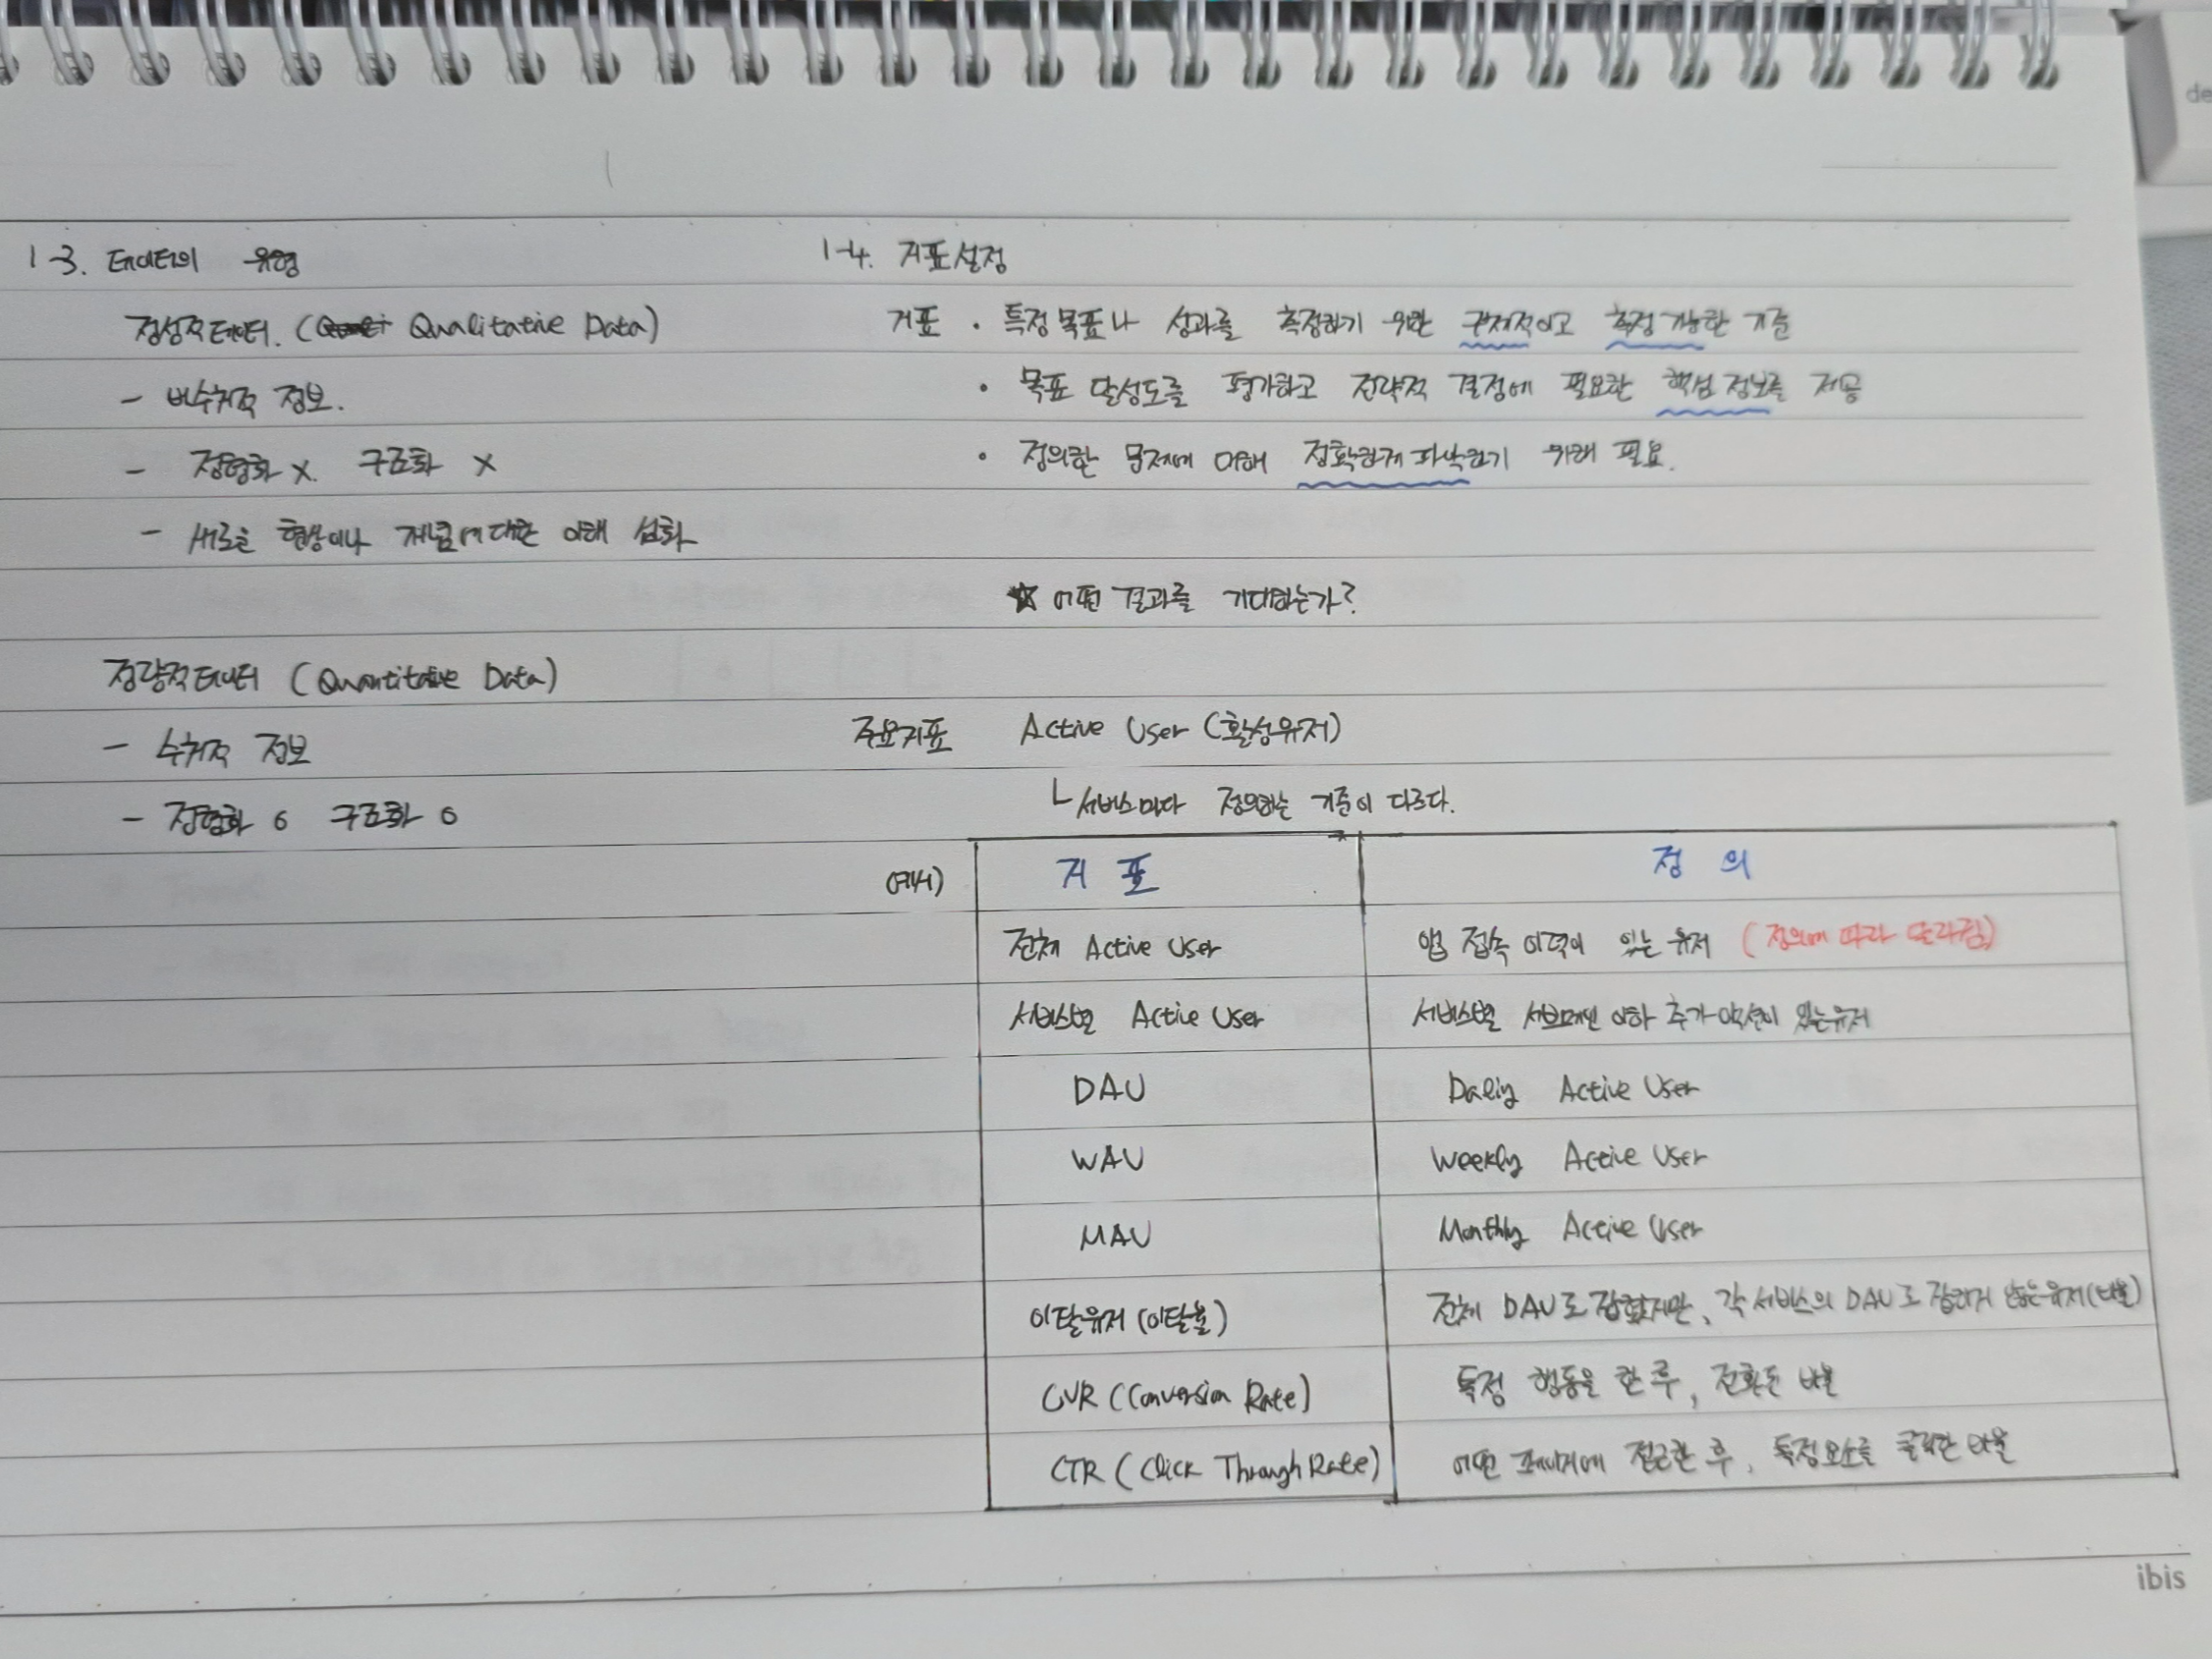 1-3. 데이터의 유형
정성적데이터. (Qualitative Data)
- 비수치적 정보.
- 정형화 x. 구조화 x
- 새로운 현상이나 개념에 대한 이해 심화
정량적데이터 (Quantitative Data)
- 수치적 정보
- 정형화 o 구조화 o
1-4. 지표설정
지표 · 특정 목표나 성과를 측정하기 위한 구체적이고 측정 가능한 기준
· 목표 달성도를 평가하고 전략적 결정에 필요한 핵심 정보를 제공
· 정의한 문제에 대해 정확하게 파악하기 위해 필요.
★ 어떤 결과를 기대하는가?
주요지표 Active User (활성유저)
└ 서비스마다 정의하는 기준이 다르다.
예시) 지표 정의
전체 Active User 앱 접속 이력이 있는 유저 (정의에 따라 달라짐)
서비스별 Active User 서비스별 서브메인 이하 추가액션이 있는유저
DAU Daliy Active User
WAU Weekly Active User
MAU Monthly Active User
이탈유저 (이탈율) 전체 DAU로 잡혔지만, 각 서비스의 DAU로 잡히지 않는유저(비율)
CVR (Conversion Rate) 특정 행동을 한 후, 전환된 비율
CTR (Click Through Rate) 어떤 페이지에 접근한 후, 특정요소를 클릭한 비율
ibis